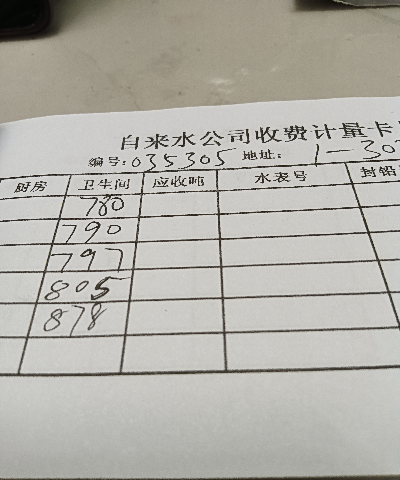 自来水公司收费计量卡
编号:035305 地址: 1-30
厨房 卫生间 应收吨 水表号 封铅
780
790
797
805
878